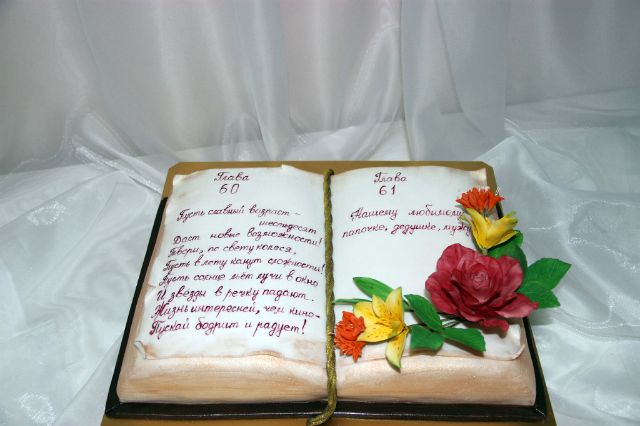 Глава
60
Пусть славный возраст -
шестьдесят
Даст новые возможности!
Гвори, по свету колеся,
Пусть в лету канут сложности!
Пусть солнце льёт лучи в окно
И звёзды в речку падают.
Жизнь интересней, чем кино-
Пускай бодрит и радует!
Глава
61
Нашему любимому
папочке, дедушке, мужу